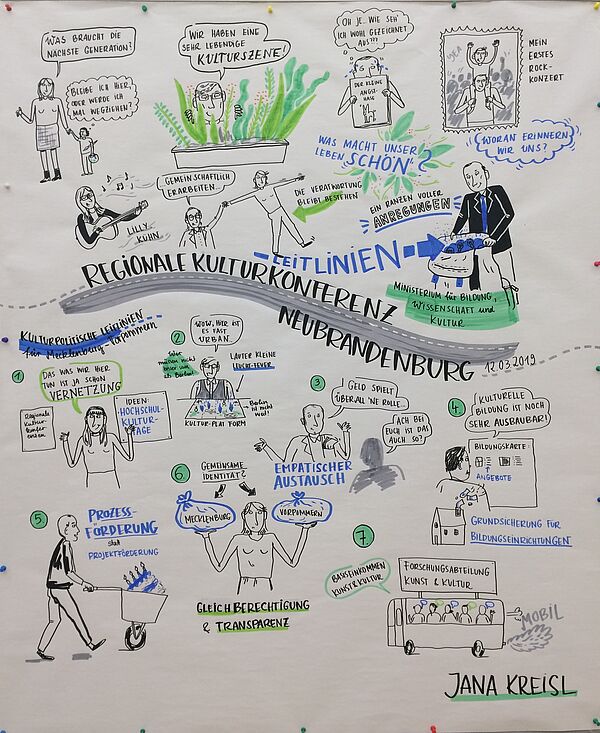 WAS BRAUCHT DIE
NÄCHSTE GENERATION?
BLEIBE ICH HIER,
ODER WERDE ICH
MAL WEGZIEHEN?
WIR HABEN EINE
SEHR LEBENDIGE
KULTURSZENE!
OH JE, WIE SEH'
ICH WOHL GEZEICHNET
AUS???
DER KLEINE
ANGST-
HASE
MEIN
ERSTES
ROCK-
KONZERT
WORAN ERINNERN
WIR UNS?
WAS MACHT UNSER
LEBEN SCHÖN?
LILLY
KÜHN
GEMEINSCHAFTLICH
ERARBEITEN...
DIE VERATWORTUNG
BLEIBT BESTEHEN
EIN RANZEN VOLLER
ANREGUNGEN
LEITLINIEN
MINISTERIUM für BILDUNG,
WISSENSCHAFT und
KULTUR
REGIONALE KULTURKONFERENZ
NEUBRANDENBURG
12.03.2019
KULTURPOLITISCHE LEITLINIEN
für Mecklenburg-Vorpommern
1
DAS WAS WIR HIER
TUN IST JA SCHON
VERNETZUNG
Regionale
Kultur-
konfer-
enzen
IDEEN:
HOCHSCHUL-
KULTUR-
TAGE
2
WOW, HIER IST
ES FAST
URBAN.
LAUTER KLEINE
LEUCHT-TÜRME
Berlin
ist nicht
weit!
KULTUR-PLATTFORM
3
GELD SPIELT
ÜBERALL 'NE ROLLE...
ACH BEI
EUCH IST DAS
AUCH SO?
EMPATISCHER
AUSTAUSCH
4
KULTURELLE
BILDUNG IST NOCH
SEHR AUSBAUBAR!
BILDUNGSKARTE:
ANGEBOTE
GRUNDSICHERUNG FÜR
BILDUNGSEINRICHTUNGEN
5.
PROZESS-
FÖRDERUNG
statt
PROJEKTFÖRDERUNG
6.
GEMEINSAME
IDENTITÄT?
MECKLENBURG
VORPOMMERN
GLEICHBERECHTIGUNG
& TRANSPARENZ
7
BASISEINKOMMEN
KUNST & KULTUR
FORSCHUNGSABTEILUNG
KUNST & KULTUR
MOBIL
JANA KREISL